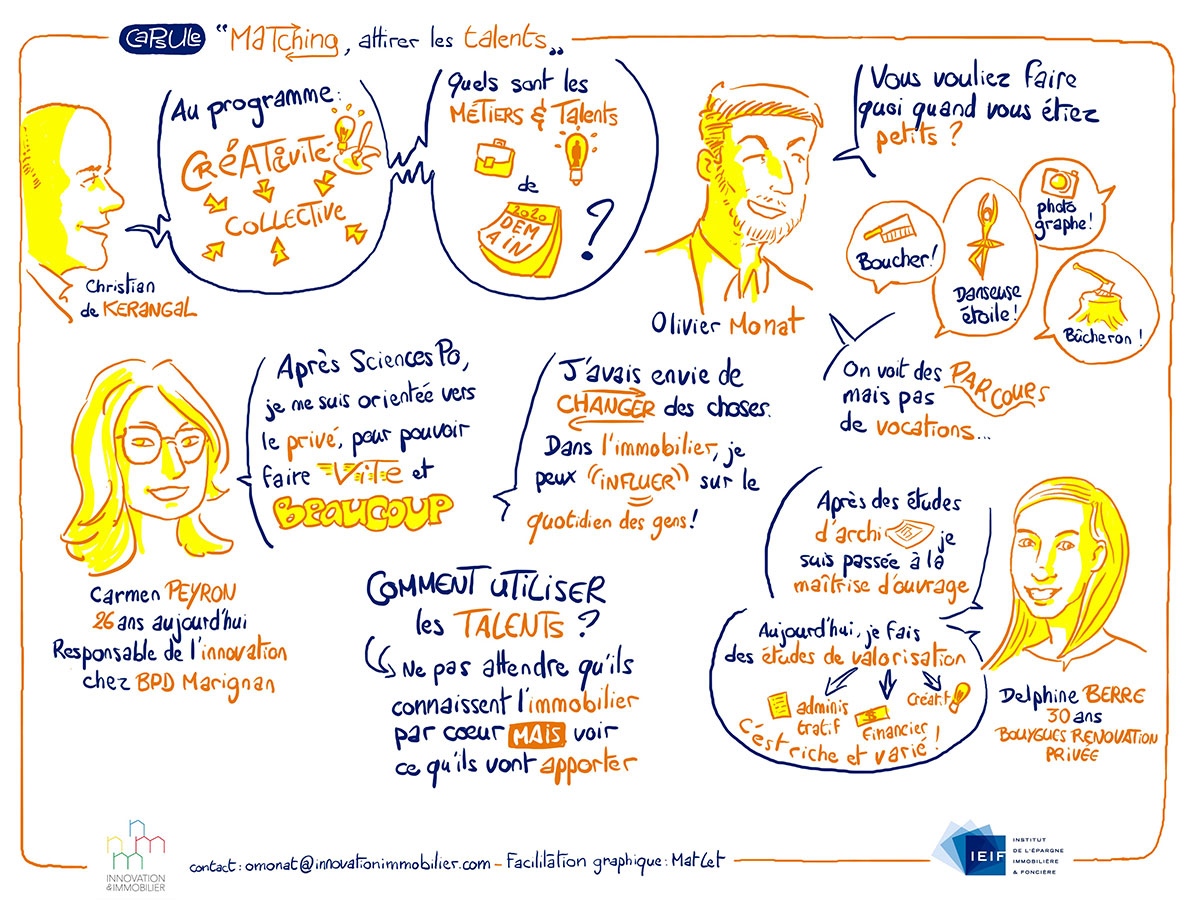 CAPSULE "MATCHING, attirer les talents„
Au programme:
CRÉATIVITÉ
COLLECTIVE
Christian
de KERANGAL
Quels sont les
MÉTIERS & Talents
de
2020
DEM
AIN
?
Olivier Monat
Vous vouliez faire
quoi quand vous étiez
petits ?
Boucher!
Danseuse
étoile!
photo
graphe!
Bûcheron !
On voit des PARCOURS
mais pas
de vocations...
Après Sciences Po,
je me suis orienteé vers
le privé, pour pouvoir
faire VITE et
BEAUCOUP
J'avais envie de
CHANGER des choses.
Dans l'immobilier, je
peux ((INFLUER)) sur le
quotidien des gens!
Carmen PEYRON
26 ans aujourd'hui
Responsable de l'innovation
chez BPD Marignan
COMMENT UTILISER
les TALENTS ?
Ne pas attendre qu'ils
connaissent l'immobilier
par cœur MAIS voir
ce qu'ils vont apporter
Après des études
d'archi je
suis passée à la
maîtrise d'ouvrage
Aujourd'hui, je fais
des études de valorisation
adminis
tratif
$
financier
Créatif
C'est riche et varié !
Delphine BERRE
30 ans
BOUYGUES RENOVATION
PRIVÉE
INNOVATION
& IMMOBILIER
contact : omonat@innovationimmobilier.com - Facilitation graphique : MatLet
IEIF
INSTITUT
DE L'ÉPARGNE
IMMOBILIÈRE
& FONCIÈRE